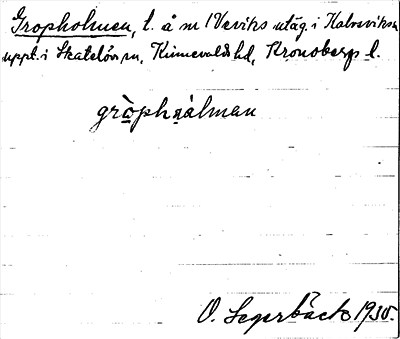 Gropholmen, l. å nr 1 Veviks utäg. i Kalvsviksn
uppt. i Skatelövs sn, Kinnevalds hd, Kronobergs l.
gròphɷ̀lmən
O. Segerbäck 1935.